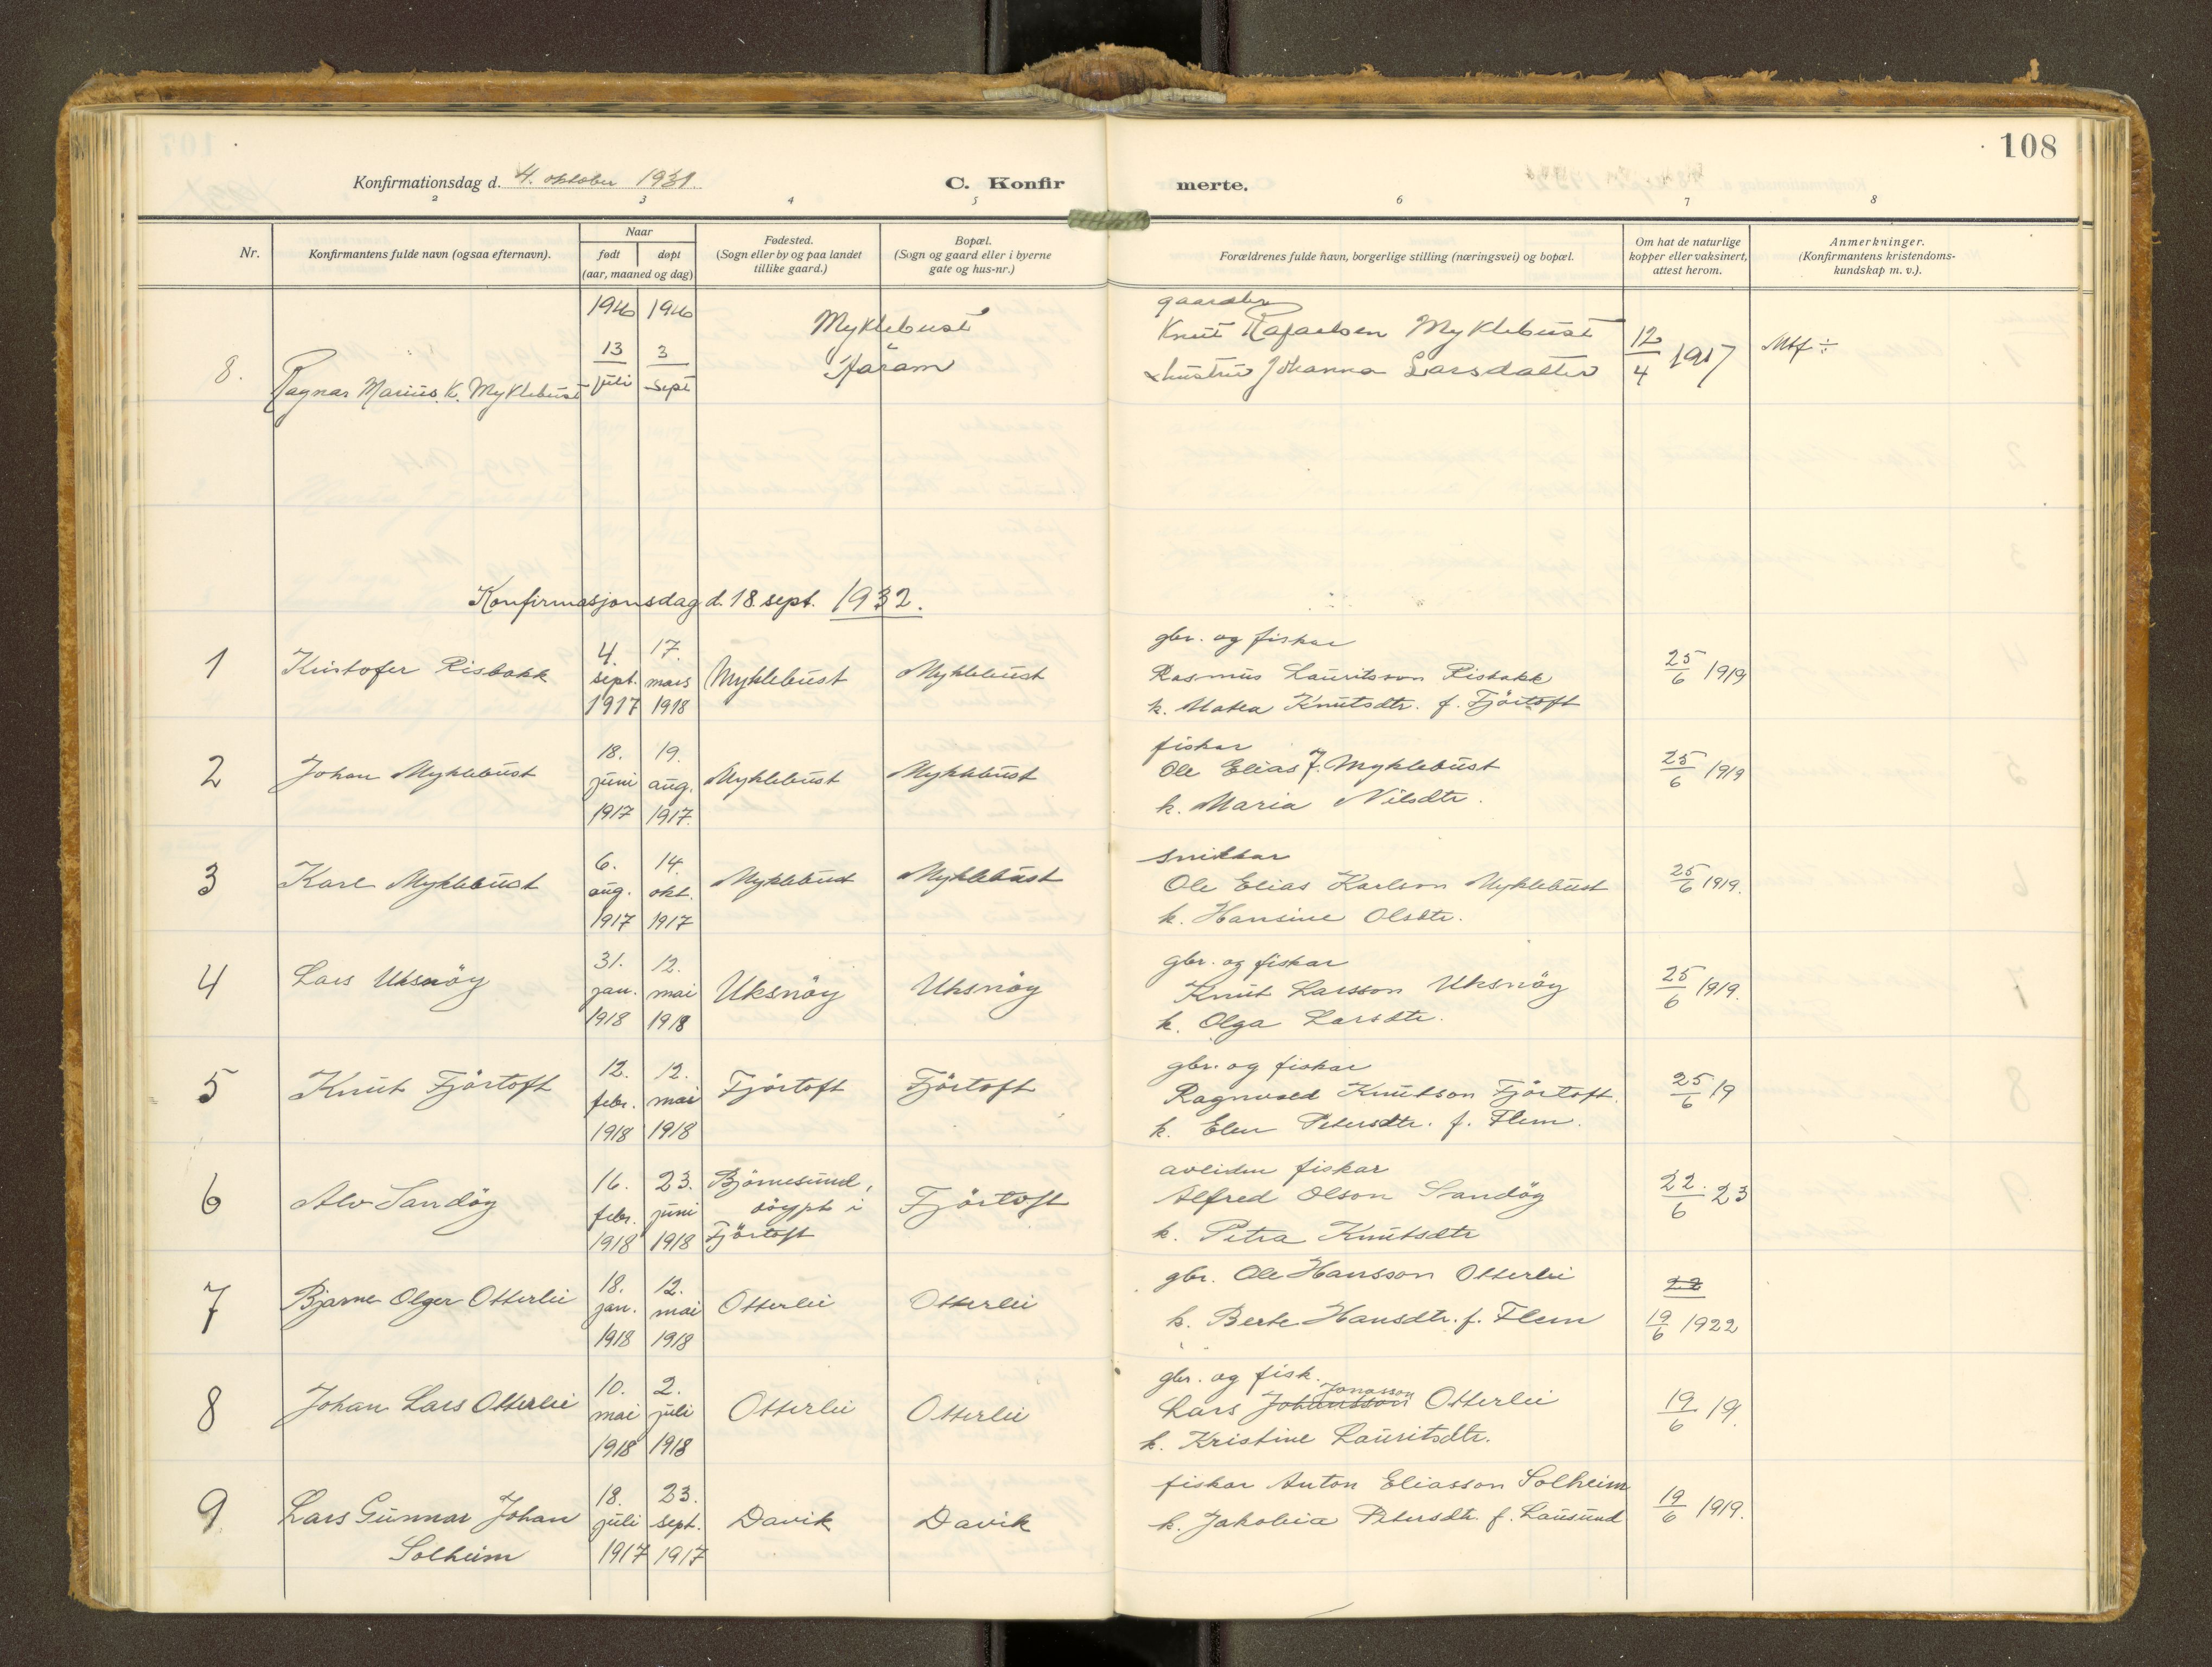 108
Konfirmationsdag d. 4. oktober 1931.
C. Konfir merte.
2 3 4 5 6 7 8
Nr.
Konfirmantens fulde navn (ogsaa efternavn).
Naar
født døpt
(aar, maaned og dag)
Fødested.
(Sogn eller by og paa landet
tillike gaard.)
Bopæl.
(Sogn og gaard eller i byerne
gate og hus-nr.)
Forældrenes fulde navn, borgerlige stilling (næringsvei) og bopæl.
Om hat de naturlige
kopper eller vaksinert,
attest herom.
Anmerkninger.
(Konfirmantens kristendoms-
kundskap m. v.).
8.
Ragnar Marius K. Myklebust
1916 1916
13 3
juli sept
Myklebust
Haram
gaardbr
Knut Rafaelsen Myklebust
& hustru Johanna Larsdatter
12/4 1917
Mtf ÷
Konfirmasjonsdag d. 18. sept. 1932.
1
Kristofer Risbakk
4. 17.
sept. mars
1917 1918
Myklebust
Myklebust
gbr. og fiskar
Rasmus Lauritsson Risbakk
k. Matea Knutsdtr. f. Fjörtoft
25/6 1919
2
Johan Myklebust
18. 19.
juni aug.
1917 1917.
Myklebust
Myklebust
fiskar
Ole Elias J. Myklebust
k. Maria Nilsdtr.
25/6 1919
3
Karl Myklebust
6. 14.
aug. okt.
1917 1917
Myklebust
Myklebust
snikkar
Ole Elias Karlson Myklebust
k. Hansine Olsdtr.
25/6 1919.
4
Lars Uksnöy
31. 12.
jan. mai
1918 1918
Uksnöy
Uksnöy
gbr. og fiskar
Knut Larsson Uksnöy
k. Olga Larsdtr.
25/6 1919.
5
Knut Fjörtoft
12. 12.
febr. mai
1918 1918
Fjörtoft
Fjörtoft
gbr. og fiskar
Ragnvald Knutson Fjörtoft.
k. Elen Petersdtr. f. Flem.
25/6 19
6
Alv Sandöy
16. 23.
febr. juni
1918 1918
Björnesund,
döypt i
Fjörtoft
Fjörtoft
avliden fiskar
Alfred Olson Sandöy
k. Petra Knutsdtr
22./6 23
7
Bjarne Olger Otterlei
18. 12.
jan. mai
1918 1918
Otterlei
Otterlei
gbr. Ole Hansson Otterlei
k. Berte Hansdtr. f. Flem
22
19/6 1922
8
Johan Lars Otterlei
10. 2.
mai juli
1918 1918
Otterlei
Otterlei
gbr. og fisk.
Jonasson
Lars Johansson Otterlei
k. Kristine Lauritsdtr.
19/6 19.
9
Lars Gunnar Johan
Solheim
18. 23.
juli sept.
1917 1917
Davik
Davik
fiskar Anton Eliasson Solheim
k. Jakobia Petersdtr. f. Lausund
19/6 1919.